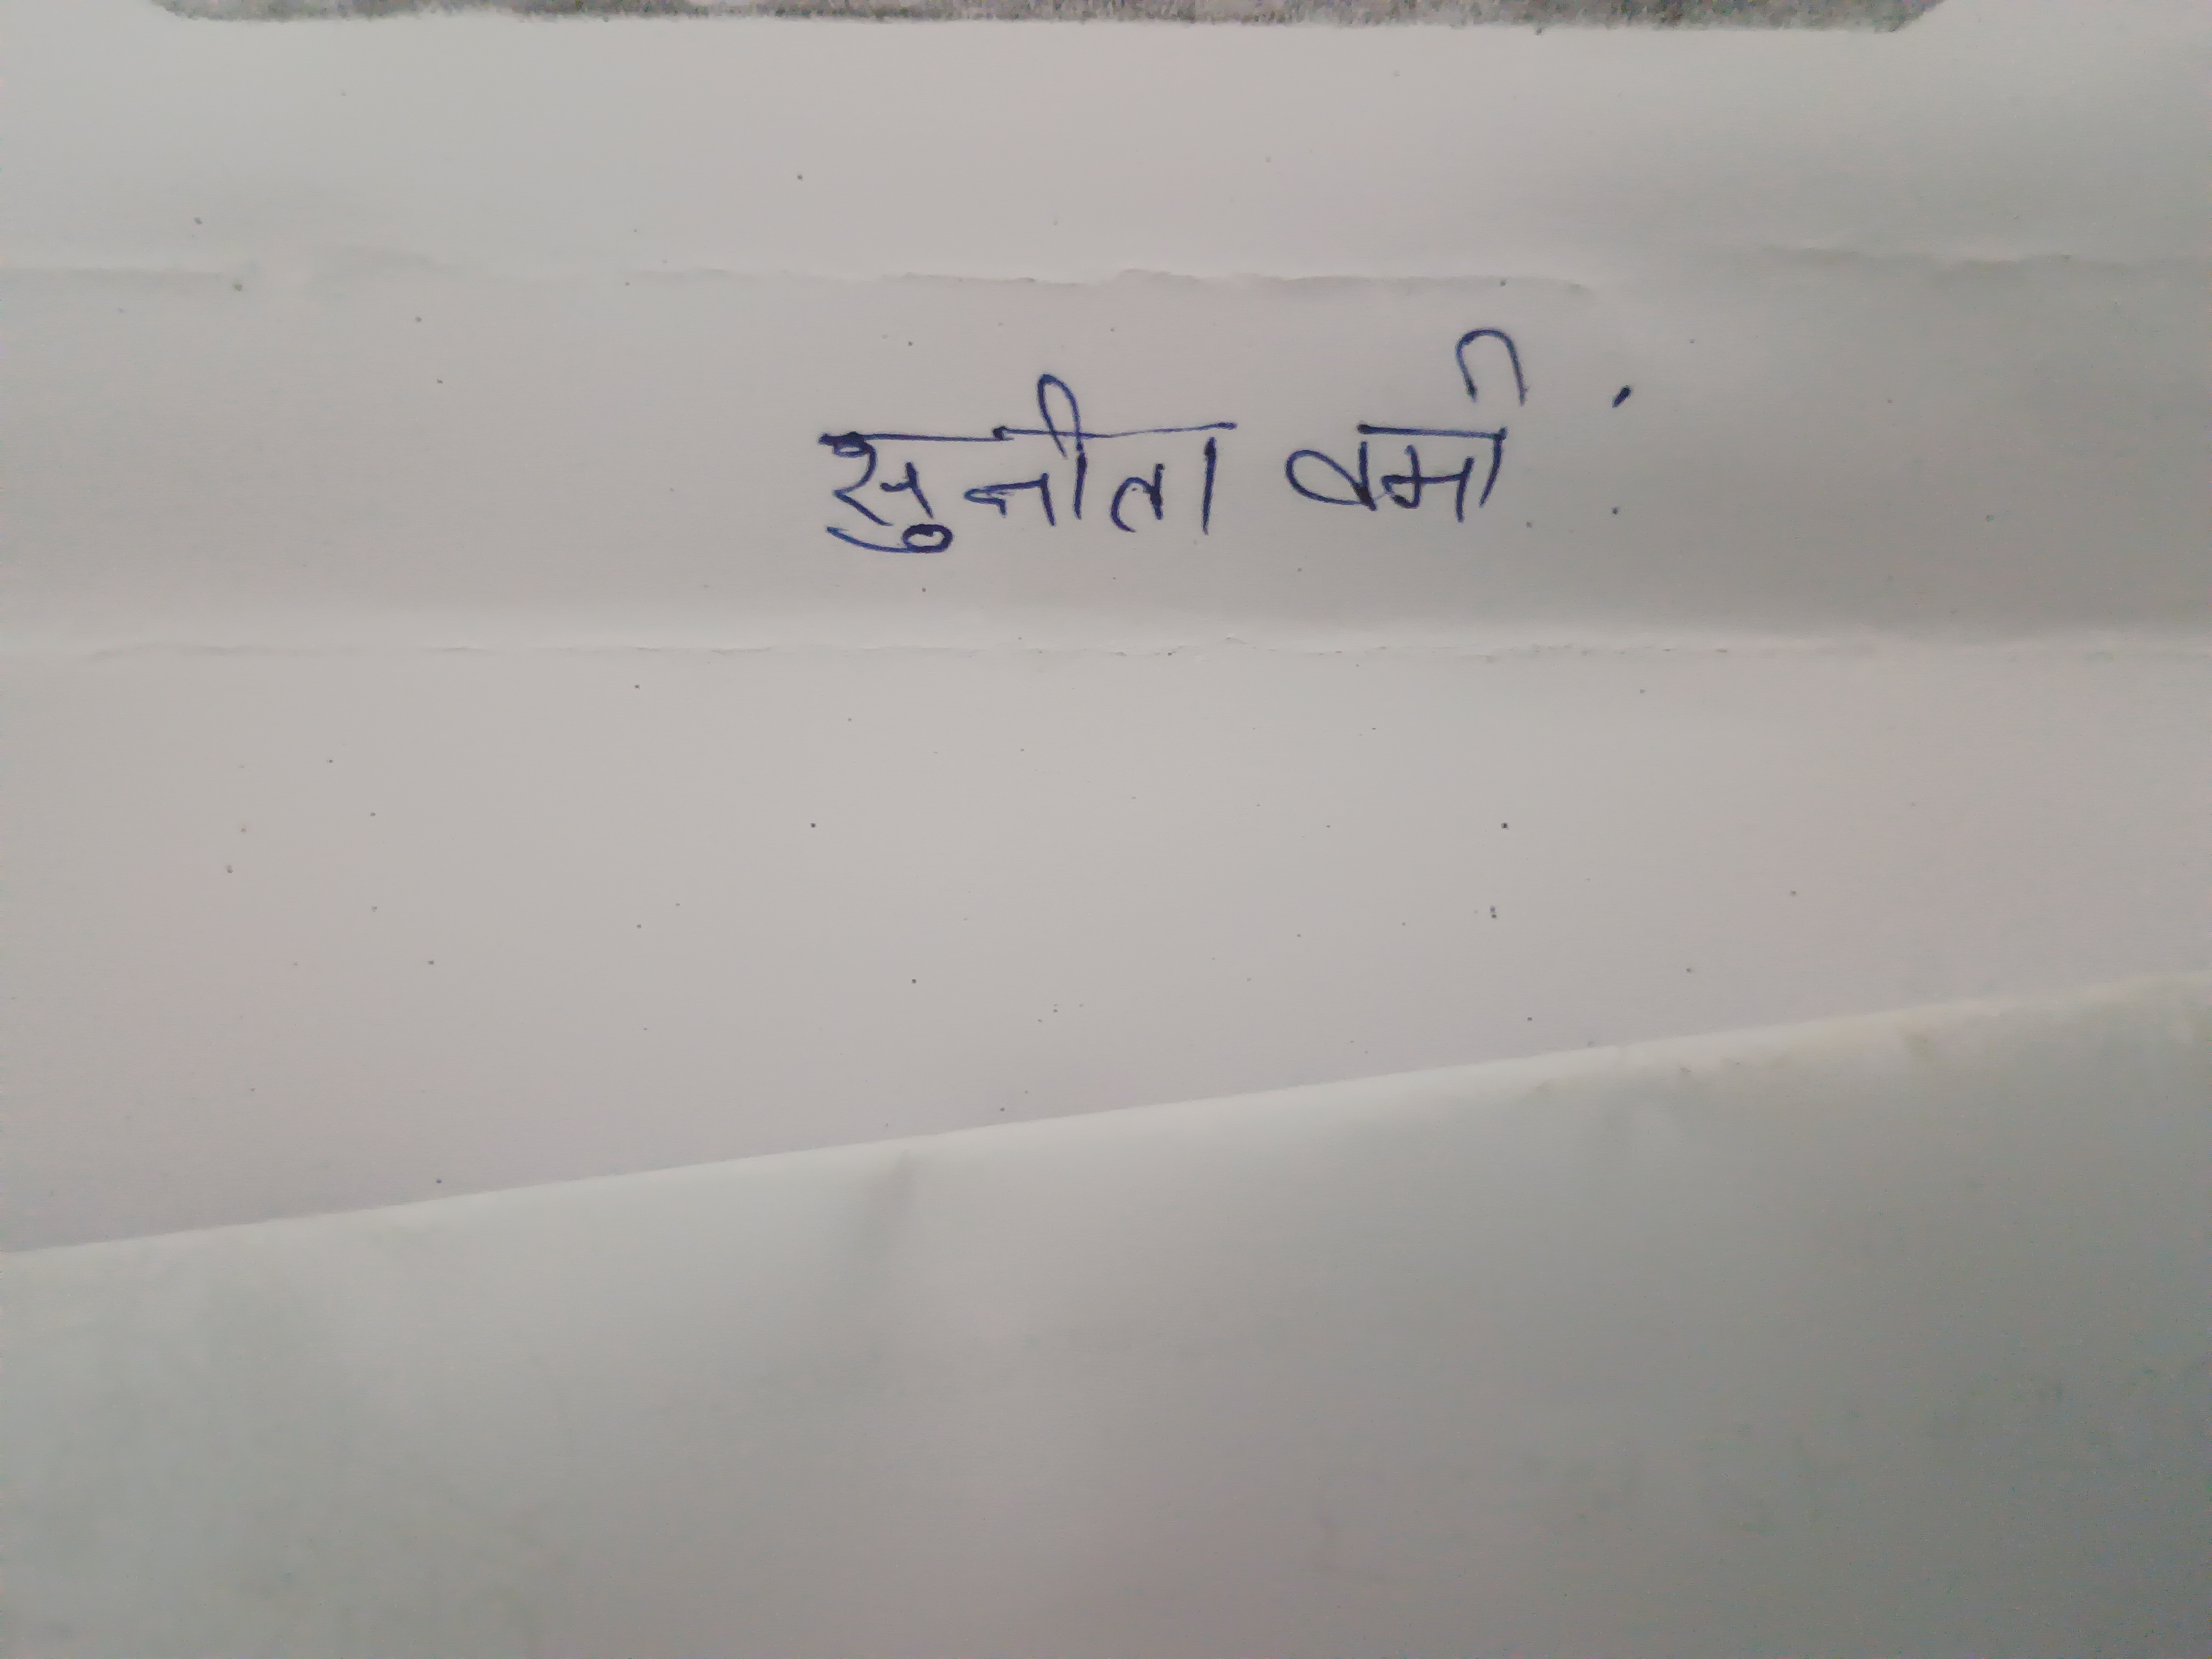 सुनीता वर्मा